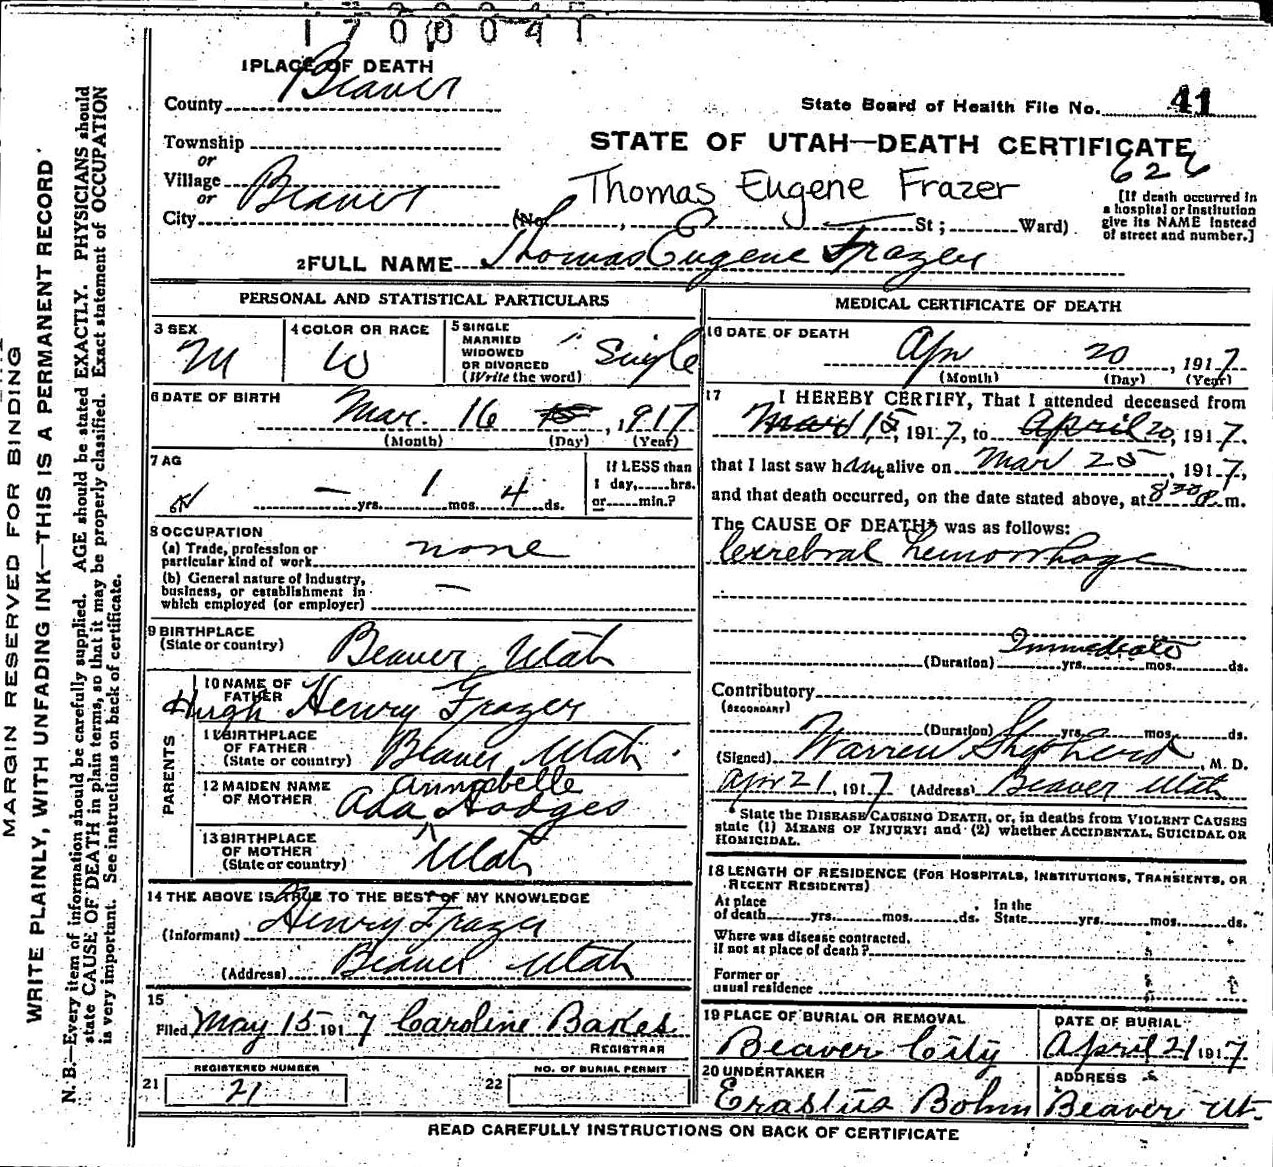 1 7 0 0 0 4 1
1 PLACE OF DEATH
County Beaver
State Board of Health File No. 41
Township
STATE OF UTAH—DEATH CERTIFICATE
or
626
Village
Thomas Eugene Frazer
or
City Beaver (No. , St; Ward)
[If death occurred in
a hospital or institution
give its NAME instead
of street and number.]
2 FULL NAME Thomas Eugene Frazer
PERSONAL AND STATISTICAL PARTICULARS
3 SEX
M
4 COLOR OR RACE
W
5 SINGLE
MARRIED
WIDOWED
OR DIVORCED
(Write the word)
" Single
6 DATE OF BIRTH
Mar. 16 15, 1917
(Month) (Day) (Year)
7 AG
— yrs. 1 mos. 4 ds.
If LESS than
1 day, hrs.
or min.?
8 OCCUPATION
(a) Trade, profession or
particular kind of work none
(b) General nature of Industry,
business, or establishment in
which employed (or employer) —
9 BIRTHPLACE
(State or country) Beaver, Utah
PARENTS
10 NAME OF
FATHER
Hugh Henry Frazer
11 BIRTHPLACE
OF FATHER
(State or country) Beaver Utah.
12 MAIDEN NAME
OF MOTHER
Annabelle
Ada Hodges
13 BIRTHPLACE
OF MOTHER
(State or country) Utah
14 THE ABOVE IS TRUE TO THE BEST OF MY KNOWLEDGE
(Informant) Henry Frazer
(Address) Beaver Utah
15
Filed May 15 1917 Caroline Bakes
REGISTRAR
REGISTERED NUMBER
21 21
NO. OF BURIAL PERMIT
22
MEDICAL CERTIFICATE OF DEATH
16 DATE OF DEATH
Apr 20, 1917
(Month) (Day) (Year)
17 I HEREBY CERTIFY, That I attended deceased from
Mar 15, 1917, to April 20, 1917.
that I last saw him alive on Mar 25, 1917,
and that death occurred, on the date stated above, at 8 30 P. m.
The CAUSE OF DEATH* was as follows:
Cerebral hemorrhage
Immediate
(Duration) yrs. mos. ds.
Contributory
(SECONDARY)
(Duration) yrs. mos. ds.
(Signed) Warren Shepherd, M. D.
Apr 21, 1917 (Address) Beaver Utah
* State the DISEASE CAUSING DEATH, or, in deaths from VIOLENT CAUSES
state (1) MEANS OF INJURY; and (2) whether ACCIDENTAL, SUICIDAL OR
HOMICIDAL.
18 LENGTH OF RESIDENCE (FOR HOSPITALS, INSTITUTIONS, TRANSIENTS, OR
RECENT RESIDENTS)
At place
of death yrs. mos. ds.
In the
State yrs. mos. ds.
Where was disease contracted,
if not at place of death?
Former or
usual residence
19 PLACE OF BURIAL OR REMOVAL
Beaver City
DATE OF BURIAL
April 21 1917
20 UNDERTAKER
Erastus Bohn
ADDRESS
Beaver Ut.
READ CAREFULLY INSTRUCTIONS ON BACK OF CERTIFICATE
MARGIN RESERVED FOR BINDING
WRITE PLAINLY, WITH UNFADING INK—THIS IS A PERMANENT RECORD
N. B.—Every item of information should be carefully supplied. AGE should be stated EXACTLY. PHYSICIANS should
state CAUSE OF DEATH in plain terms, so that it may be properly classified. Exact statement of OCCUPATION
is very important. See instructions on back of certificate.